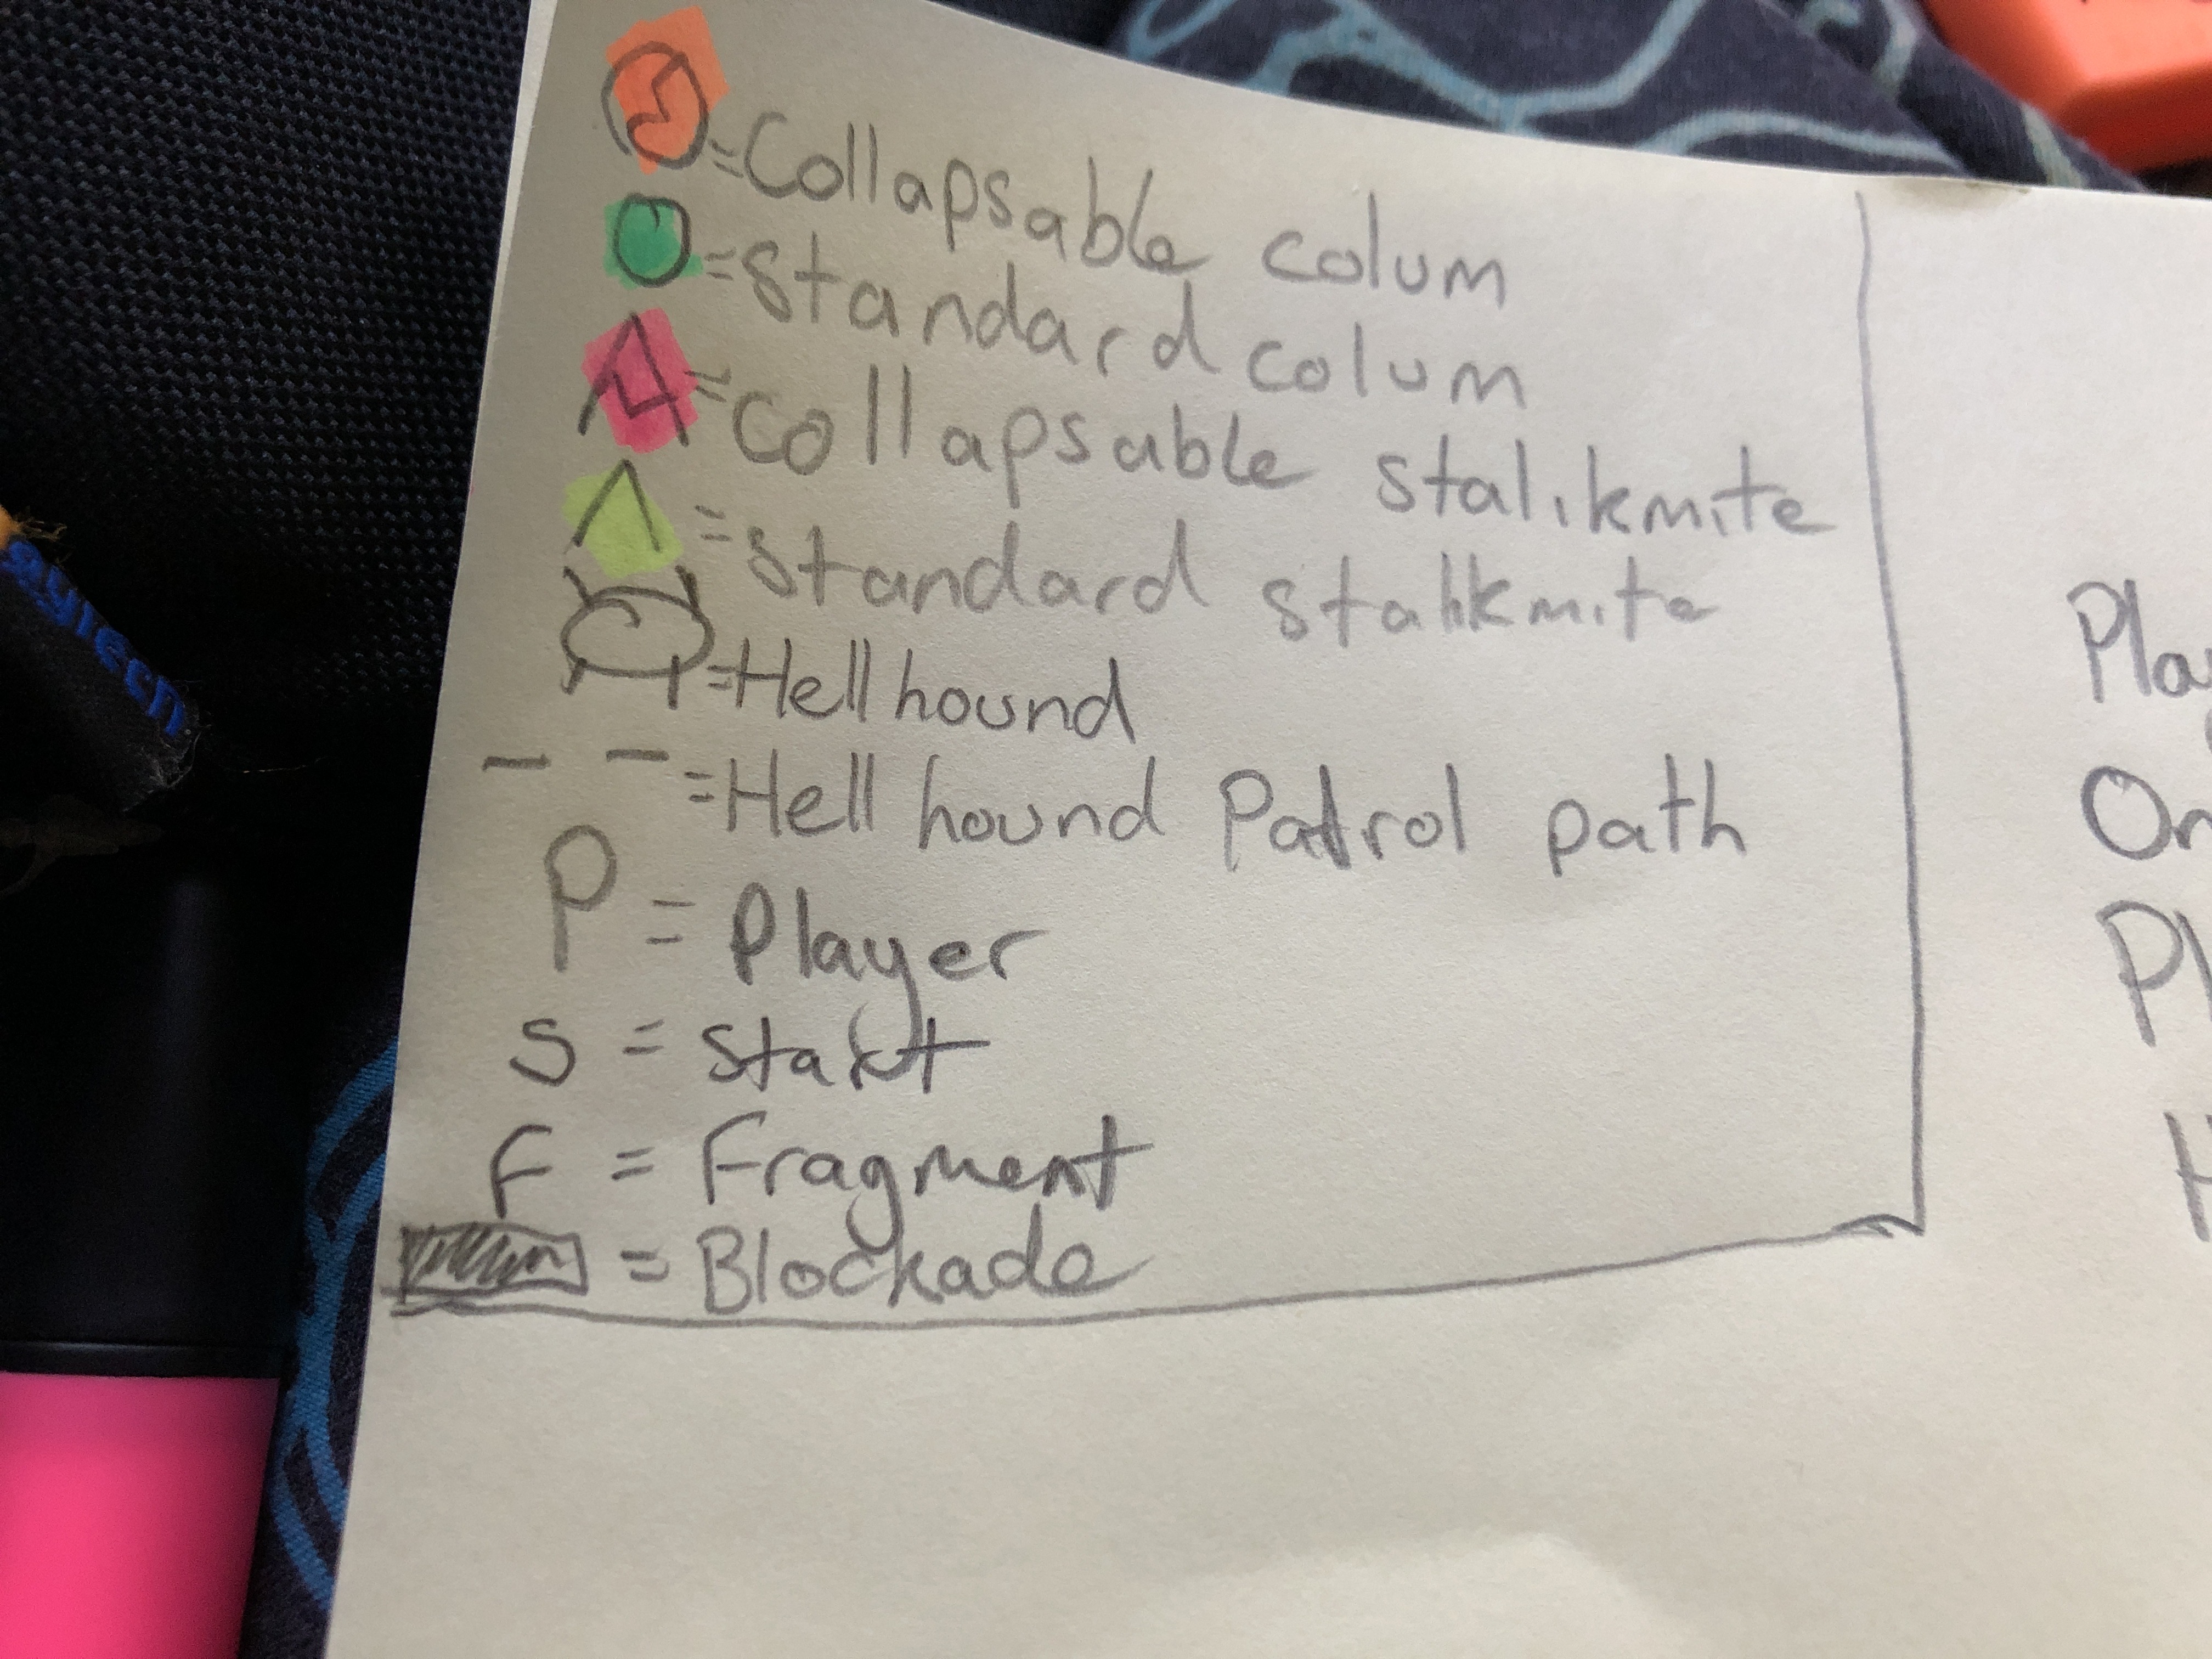 = Collapsable colum
= standard colum
= Collapsable stalikmite
= standard stalikmite
= Hell hound
- - = Hell hound Patrol path
P = player
S = start
F = Fragment
= Blockade